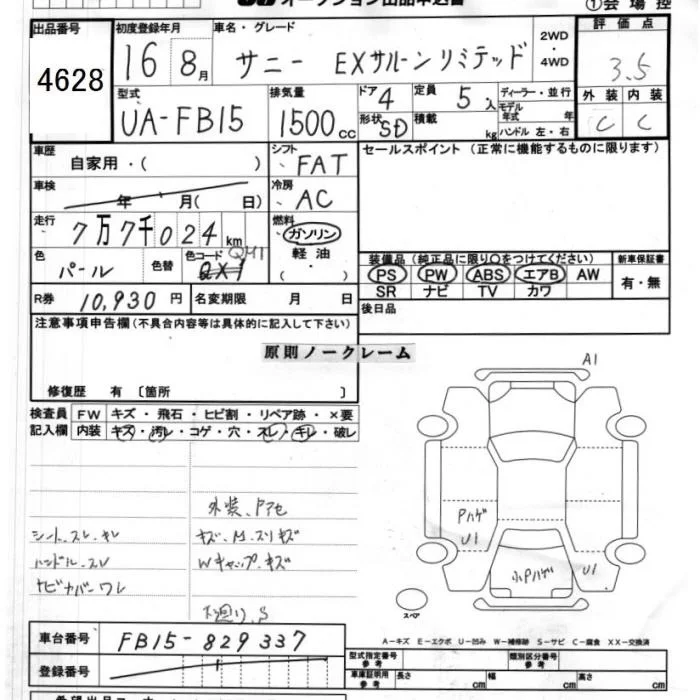 オークション出品申込書
①会場控
出品番号
4628
初度登録年月
16 8月
車名・グレード
サニー EXサルーンリミテッド
2WD
・
4WD
評価点
3.5
外装 内装
C C
型式
UA-FB15
排気量
1500cc
ドア 4
形状 SD
定員 5人
積載 kg
ディーラー・並行
モデル年式 年
ハンドル 左・右
車歴
自家用・( )
シフト
FAT
セールスポイント (正常に機能するものに限ります)
車検
年 月( 日)
冷房
AC
走行
7万7千024km
燃料
ガソリン
軽油
( ・ )
色
パール
色替
色コード QM1
QX1
装備品 (純正品に限り○をつけてください)
PS PW ABS エアB AW
SR ナビ TV カワ
新車保証書
有・無
R券 10,930円
名変期限 月 日
後日品
注意事項申告欄(不具合内容等は具体的に記入して下さい)
原則ノークレーム
修復歴 有 〔箇所 〕
検査員記入欄
FW キズ・飛石・ヒビ割・リペア跡・×要
内装 キズ・汚レ・コゲ・穴・スレ・キレ・破レ
A1
外装、Pアセ
シート、スレ、キレ
キズ、M、スリキズ
ハンドル、スレ
Wキャップ、キズ
ナビカバーワレ
下廻り、S
Pハゲ
U1
小Pハゲ
U1
スペア
A-キズ E-エクボ U-凹み W-補修跡 S-サビ C-腐食 XX-交換済
車台番号
FB15-829337
登録番号
型式指定番号
参考
類別区分番号
参考
車庫証明用
参考
長さ cm
幅 cm
高さ cm